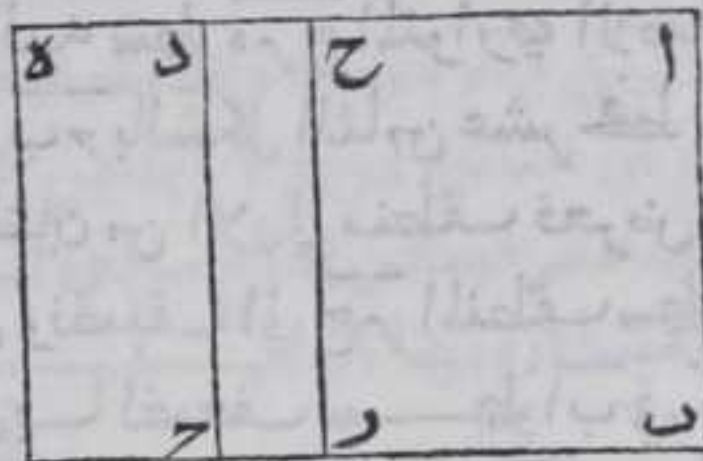 ا ح د ه
ب ر ح